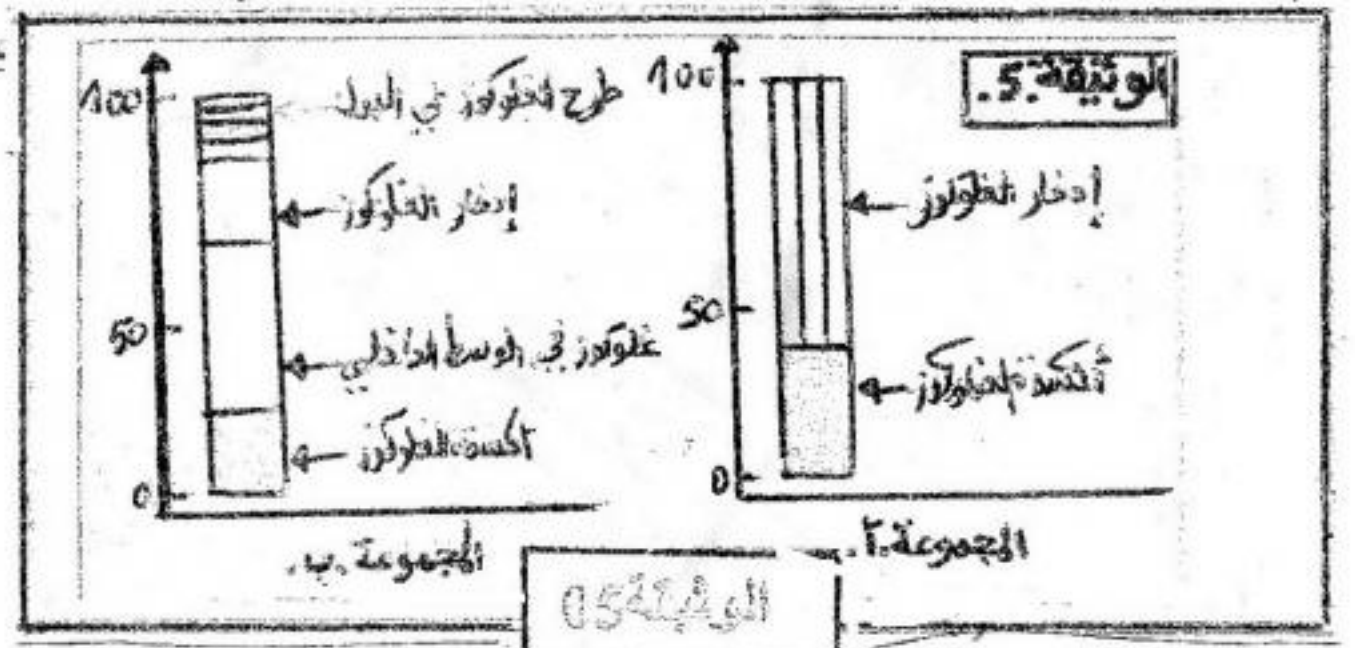 الوثيقة.5.
100
إدخار الغلوكوز
50
أكسدة الغلوكوز
0
المجموعة.آ.
100
طرح الغلوكوز في البول
إدخار الغلوكوز
50
غلوكوز في الوسط الداخلي
أكسدة الغلوكوز
0
المجموعة.ب.
الوثيقة 05